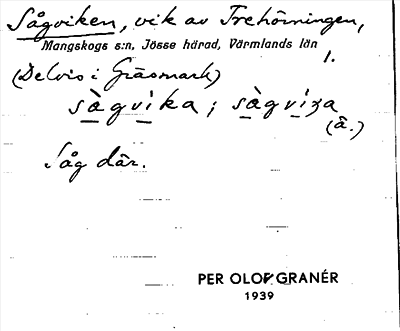 Sågviken, vik av Trehörningen,
Mangskogs s:n, Jösse härad, Värmlands län
1.
(Delvis i Gräsmark)
sàgvika; sàgviʒa
(å.)
Såg där.
PER OLOF GRANÉR
1939